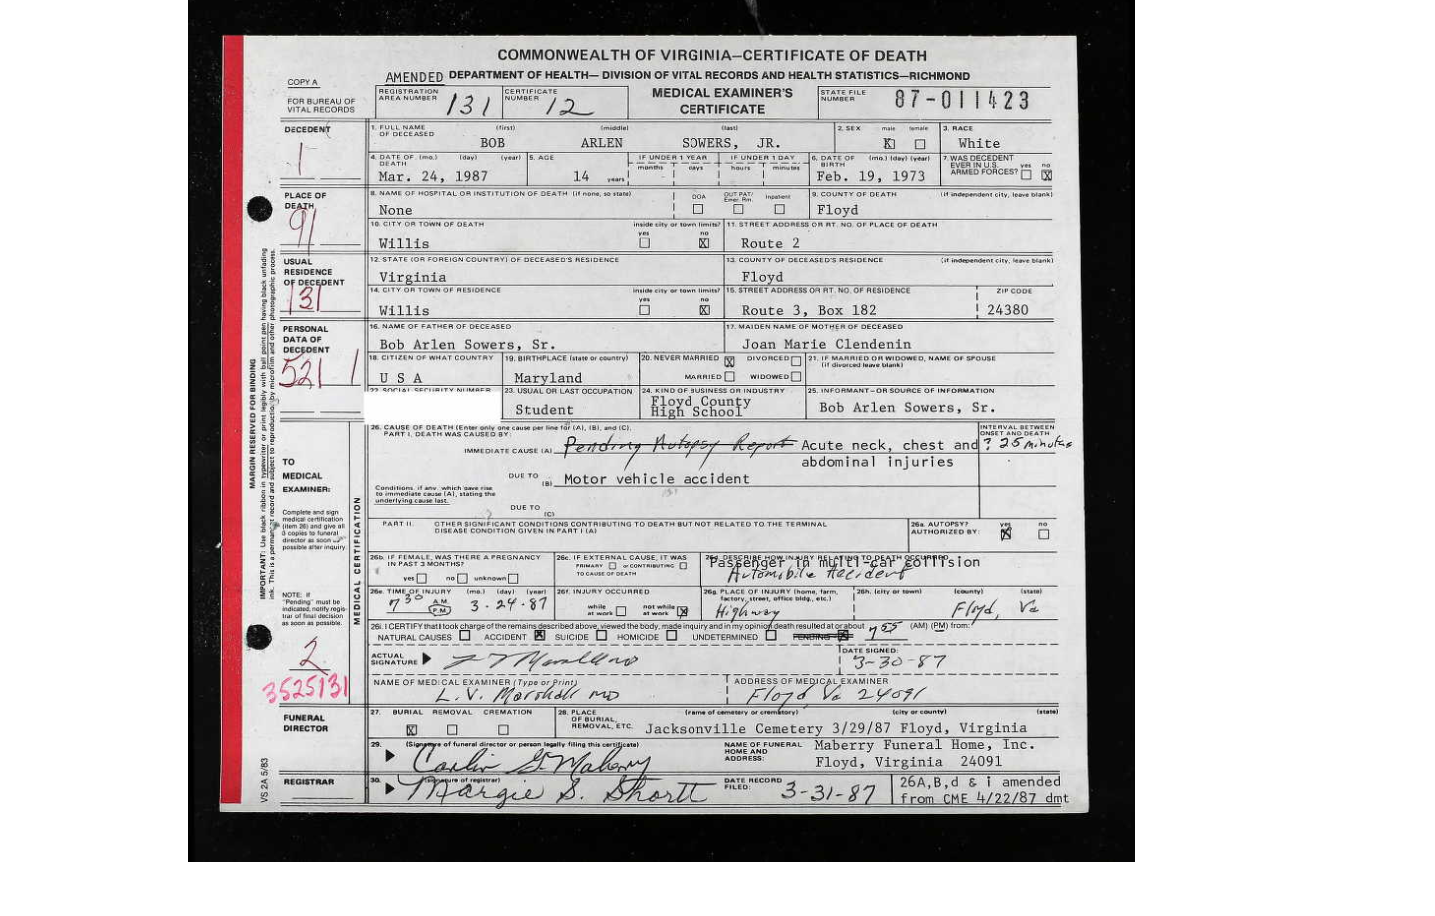 COMMONWEALTH OF VIRGINIA—CERTIFICATE OF DEATH
COPY A
AMENDED DEPARTMENT OF HEALTH— DIVISION OF VITAL RECORDS AND HEALTH STATISTICS—RICHMOND
FOR BUREAU OF VITAL RECORDS
REGISTRATION AREA NUMBER 131
CERTIFICATE NUMBER 12
MEDICAL EXAMINER'S CERTIFICATE
STATE FILE NUMBER 87-011423
DECEDENT
1
1. FULL NAME OF DECEASED (first) (middle) (last)
BOB ARLEN SOWERS, JR.
2. SEX male female
X
3. RACE
White
4. DATE OF DEATH (mo.) (day) (year)
Mar. 24, 1987
5. AGE
14 years
IF UNDER 1 YEAR
months days
IF UNDER 1 DAY
hours minutes
6. DATE OF BIRTH (mo.) (day) (year)
Feb. 19, 1973
7. WAS DECEDENT EVER IN U.S. ARMED FORCES? yes no
X
PLACE OF DEATH
91
8. NAME OF HOSPITAL OR INSTITUTION OF DEATH (if none, so state)
None
DOA OUT PAT/ Emer. Rm. Inpatient
9. COUNTY OF DEATH (if independent city, leave blank)
Floyd
10. CITY OR TOWN OF DEATH inside city or town limits? yes no
Willis X
11. STREET ADDRESS OR RT. NO. OF PLACE OF DEATH
Route 2
USUAL RESIDENCE OF DECEDENT
131
12. STATE (OR FOREIGN COUNTRY) OF DECEASED'S RESIDENCE
Virginia
13. COUNTY OF DECEASED'S RESIDENCE (if independent city, leave blank)
Floyd
14. CITY OR TOWN OF RESIDENCE inside city or town limits? yes no
Willis X
15. STREET ADDRESS OR RT. NO. OF RESIDENCE
Route 3, Box 182
ZIP CODE
24380
PERSONAL DATA OF DECEDENT
521 1
16. NAME OF FATHER OF DECEASED
Bob Arlen Sowers, Sr.
17. MAIDEN NAME OF MOTHER OF DECEASED
Joan Marie Clendenin
18. CITIZEN OF WHAT COUNTRY
U S A
19. BIRTHPLACE (state or country)
Maryland
20. NEVER MARRIED X DIVORCED
MARRIED WIDOWED
21. IF MARRIED OR WIDOWED, NAME OF SPOUSE (if divorced leave blank)
22. SOCIAL SECURITY NUMBER
23. USUAL OR LAST OCCUPATION
Student
24. KIND OF BUSINESS OR INDUSTRY
Floyd County
High School
25. INFORMANT—OR SOURCE OF INFORMATION
Bob Arlen Sowers, Sr.
MARGIN RESERVED FOR BINDING
TO MEDICAL EXAMINER:
Complete and sign medical certification (item 26) and give all
director as soon as possible after inquiry.
NOTE: If "Pending" must be indicated, notify registrar of final decision as soon as possible.
2
3525131
MEDICAL CERTIFICATION
26. CAUSE OF DEATH (Enter only one cause per line for (A), (B), and (C).
PART I. DEATH WAS CAUSED BY:
INTERVAL BETWEEN ONSET AND DEATH
IMMEDIATE CAUSE (A) Pending Autopsy Report Acute neck, chest and ? 25 minutes
abdominal injuries
DUE TO (B) Motor vehicle accident
Conditions, if any, which gave rise to immediate cause (A), stating the underlying cause last.
DUE TO (C)
PART II. OTHER SIGNIFICANT CONDITIONS CONTRIBUTING TO DEATH BUT NOT RELATED TO THE TERMINAL DISEASE CONDITION GIVEN IN PART I (A)
26a. AUTOPSY? yes no
AUTHORIZED BY: X
26b. IF FEMALE, WAS THERE A PREGNANCY IN PAST 3 MONTHS?
yes no unknown
26c. IF EXTERNAL CAUSE, IT WAS
PRIMARY or CONTRIBUTING
TO CAUSE OF DEATH
26d. DESCRIBE HOW INJURY RELATING TO DEATH OCCURRED
Passenger in multi-car collision
Automobile Accident
26e. TIME OF INJURY (mo.) (day) (year)
7 30 A.M. P.M. 3-24-87
26f. INJURY OCCURRED
while at work not while at work X
26g. PLACE OF INJURY (home, farm, factory, street, office bldg., etc.)
Highway
26h. (city or town) (county) (state)
Floyd, Va
26i. I CERTIFY that I took charge of the remains described above, viewed the body, made inquiry and in my opinion death resulted at or about 7 55 (AM) (PM) from:
NATURAL CAUSES ACCIDENT X SUICIDE HOMICIDE UNDETERMINED PENDING X
ACTUAL SIGNATURE
DATE SIGNED:
3-30-87
NAME OF MEDICAL EXAMINER (Type or Print)
L.V. Marshall MD
ADDRESS OF MEDICAL EXAMINER
Floyd Va 24091
FUNERAL DIRECTOR
27. BURIAL REMOVAL CREMATION
X
28. PLACE OF BURIAL, REMOVAL, ETC. (name of cemetery or crematory) (city or county) (state)
Jacksonville Cemetery 3/29/87 Floyd, Virginia
29. (Signature of funeral director or person legally filing this certificate)
Carlin G. Maberry
NAME OF FUNERAL HOME AND ADDRESS:
Maberry Funeral Home, Inc.
Floyd, Virginia 24091
VS 2A 5/83
REGISTRAR
30. (Signature of registrar)
Margie S. Shortt
DATE RECORD FILED:
3-31-87
26A,B,d & i amended
from CME 4/22/87 dmt